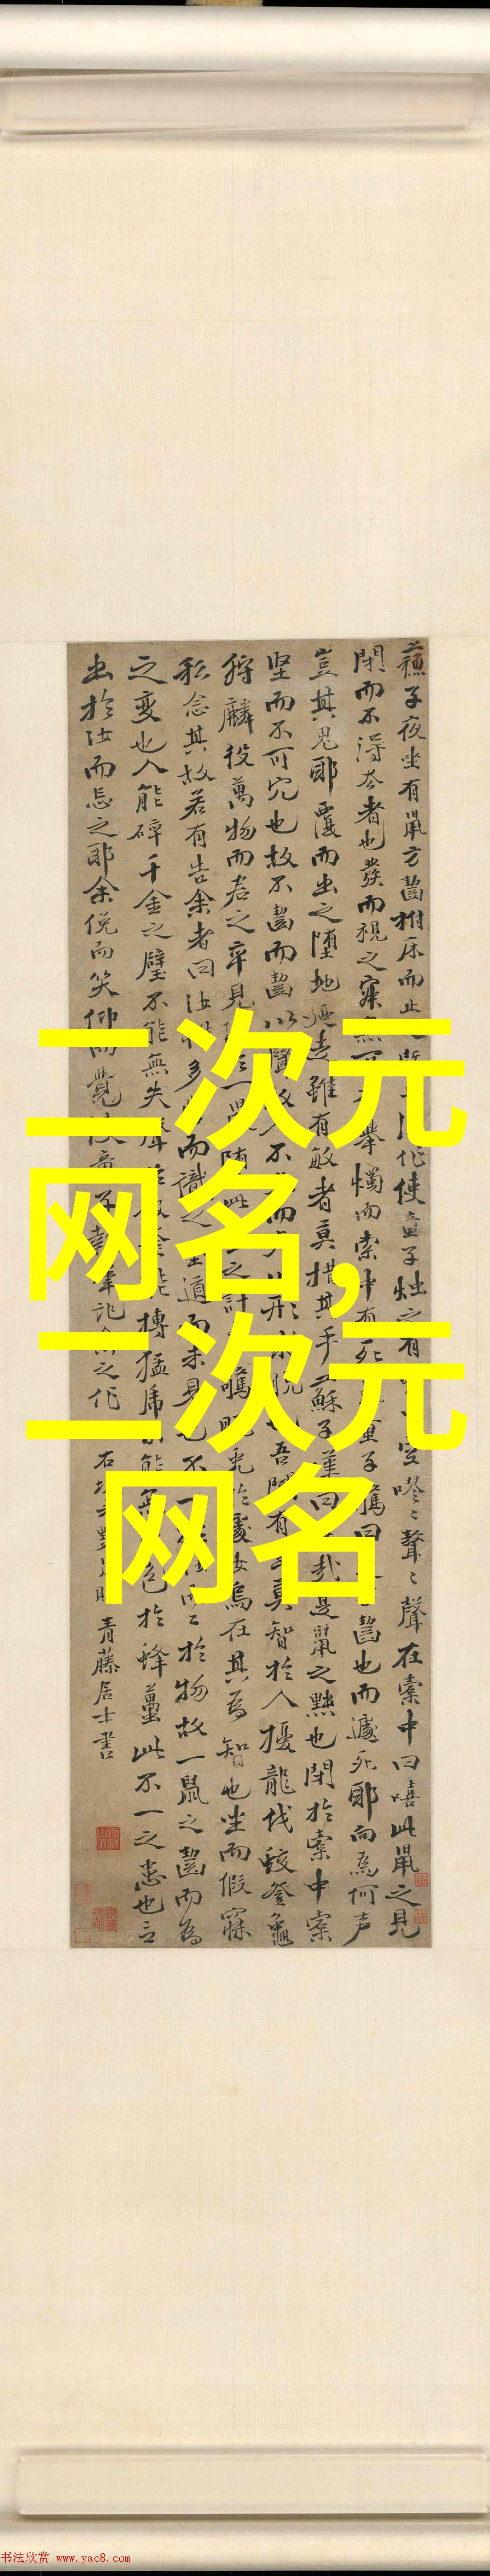 二次元
网名,
二次元
网名
蘓子夜坐有鼠方齧拊床而止作使童子燭之有空嘐〻聱〻聲在橐中曰嘻此鼠之見
閉而不得去者也發而視之寂無舉燭而索中有死童子驚曰齧也而遽死耶向為何声
豈其鬼耶覆而出之墮地廼走雖有敏者莫措其手蘇子嘆曰哉是鼠之黠也閉於橐中橐
堅而不可穴也故不齧而齧以聲致人不而形求脫也吾聞有莫智於人擾龍伐蛟登龜
狩麟役萬物而君之卒見一鼠墮此之計驚脫兔於處女烏在其為智也坐而假寐
私念其故若有告余者曰汝多而識之道而未見也不一於物故一鼠之齧而為
之變也人能碎千金之璧不能無失聲釜能搏猛虎能無色於蜂蠆此不一之患也言
出於汝而忘之耶余俛而笑仰而覺童子執筆記余之作
右坡青藤居士書
书法欣赏 www.yac8.com